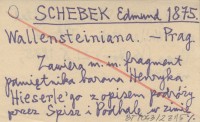 SCHEBEK Edmund 1875.
Wallensteiniana. — Prag
Zawiera m.in. fragment
pamiętnika barona Henryka
Hieserle'go z opisem podróży
przez Spisz i Podhale w zimie